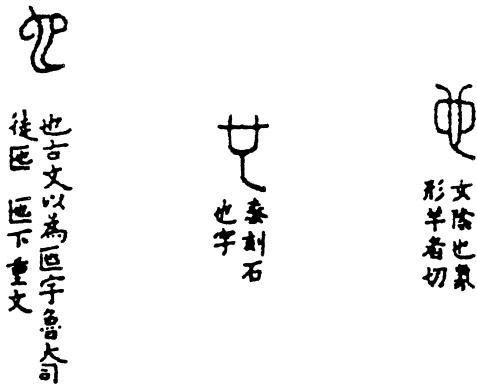 女陰也象
形羊者切
秦刻石
也字
也古文以為匜字魯大司
徒匜 匜下重文